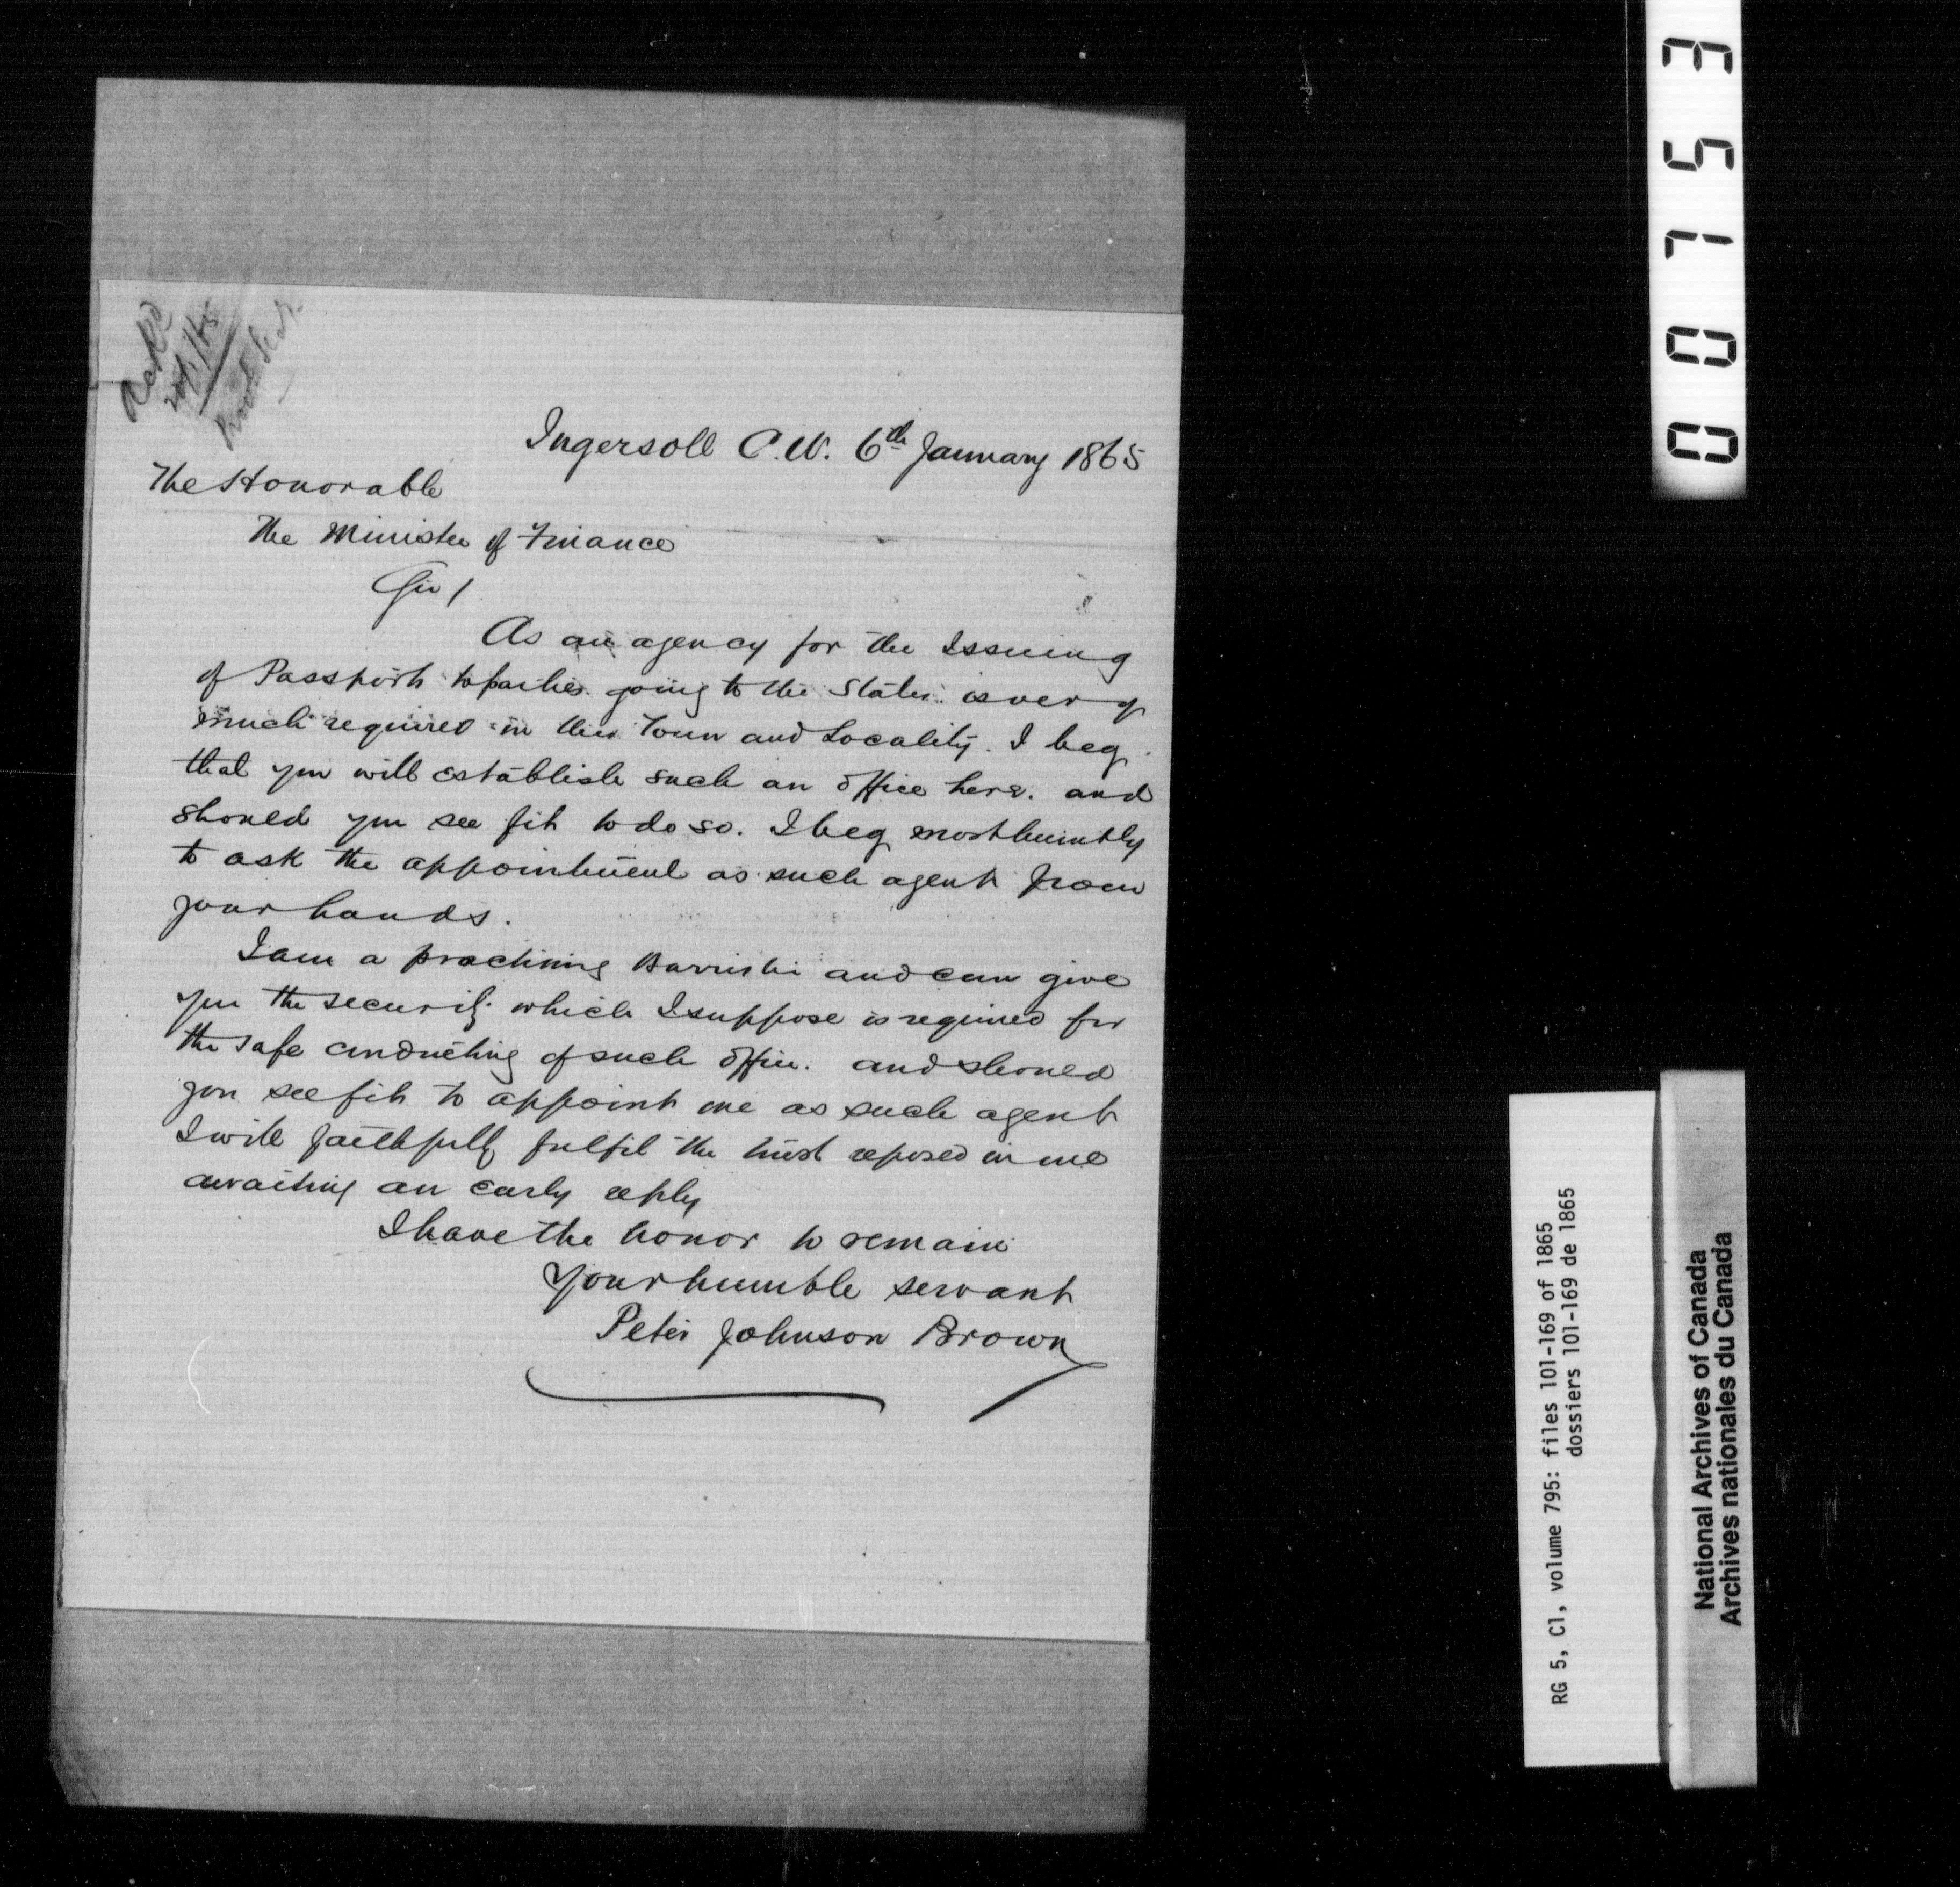 Ackd
Ingersoll C.W. 6th January 1865
The Honorable
The Minister of Finance
Sir /
As an agency for the Issuing
of Passports to parties going to the States is very
much required in this Town and Locality. I beg
that you will establish such an office here. and
should you see fit to do so. I beg most humbly
to ask the appointment as such agent from
your hands.
I am a practising Barrister and can give
you the security which I suppose is required for
the safe conducting of such office. and should
you see fit to appoint me as such agent
I will faithfully fulfil the trust reposed in me
awaiting an early reply
I have the honor to remain
Your humble servant
Peter Johnson Brown
00753
RG 5, C1, volume 795: files 101-169 of 1865
dossiers 101-169 de 1865
National Archives of Canada
Archives nationales du Canada